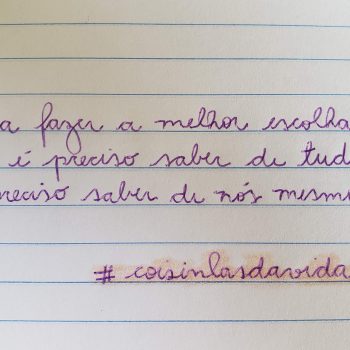 a fazer a melhor escolha
é preciso saber de tud
preciso saber de nós mesm
# coisinhasdavida